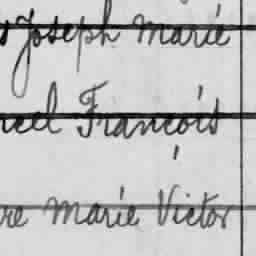 Joseph Marie
François
Marie Victor